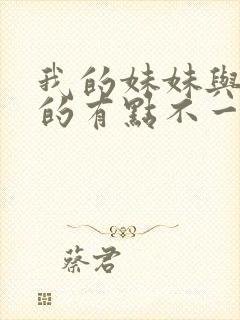 我的妹妹與
的有點不一
蔡君